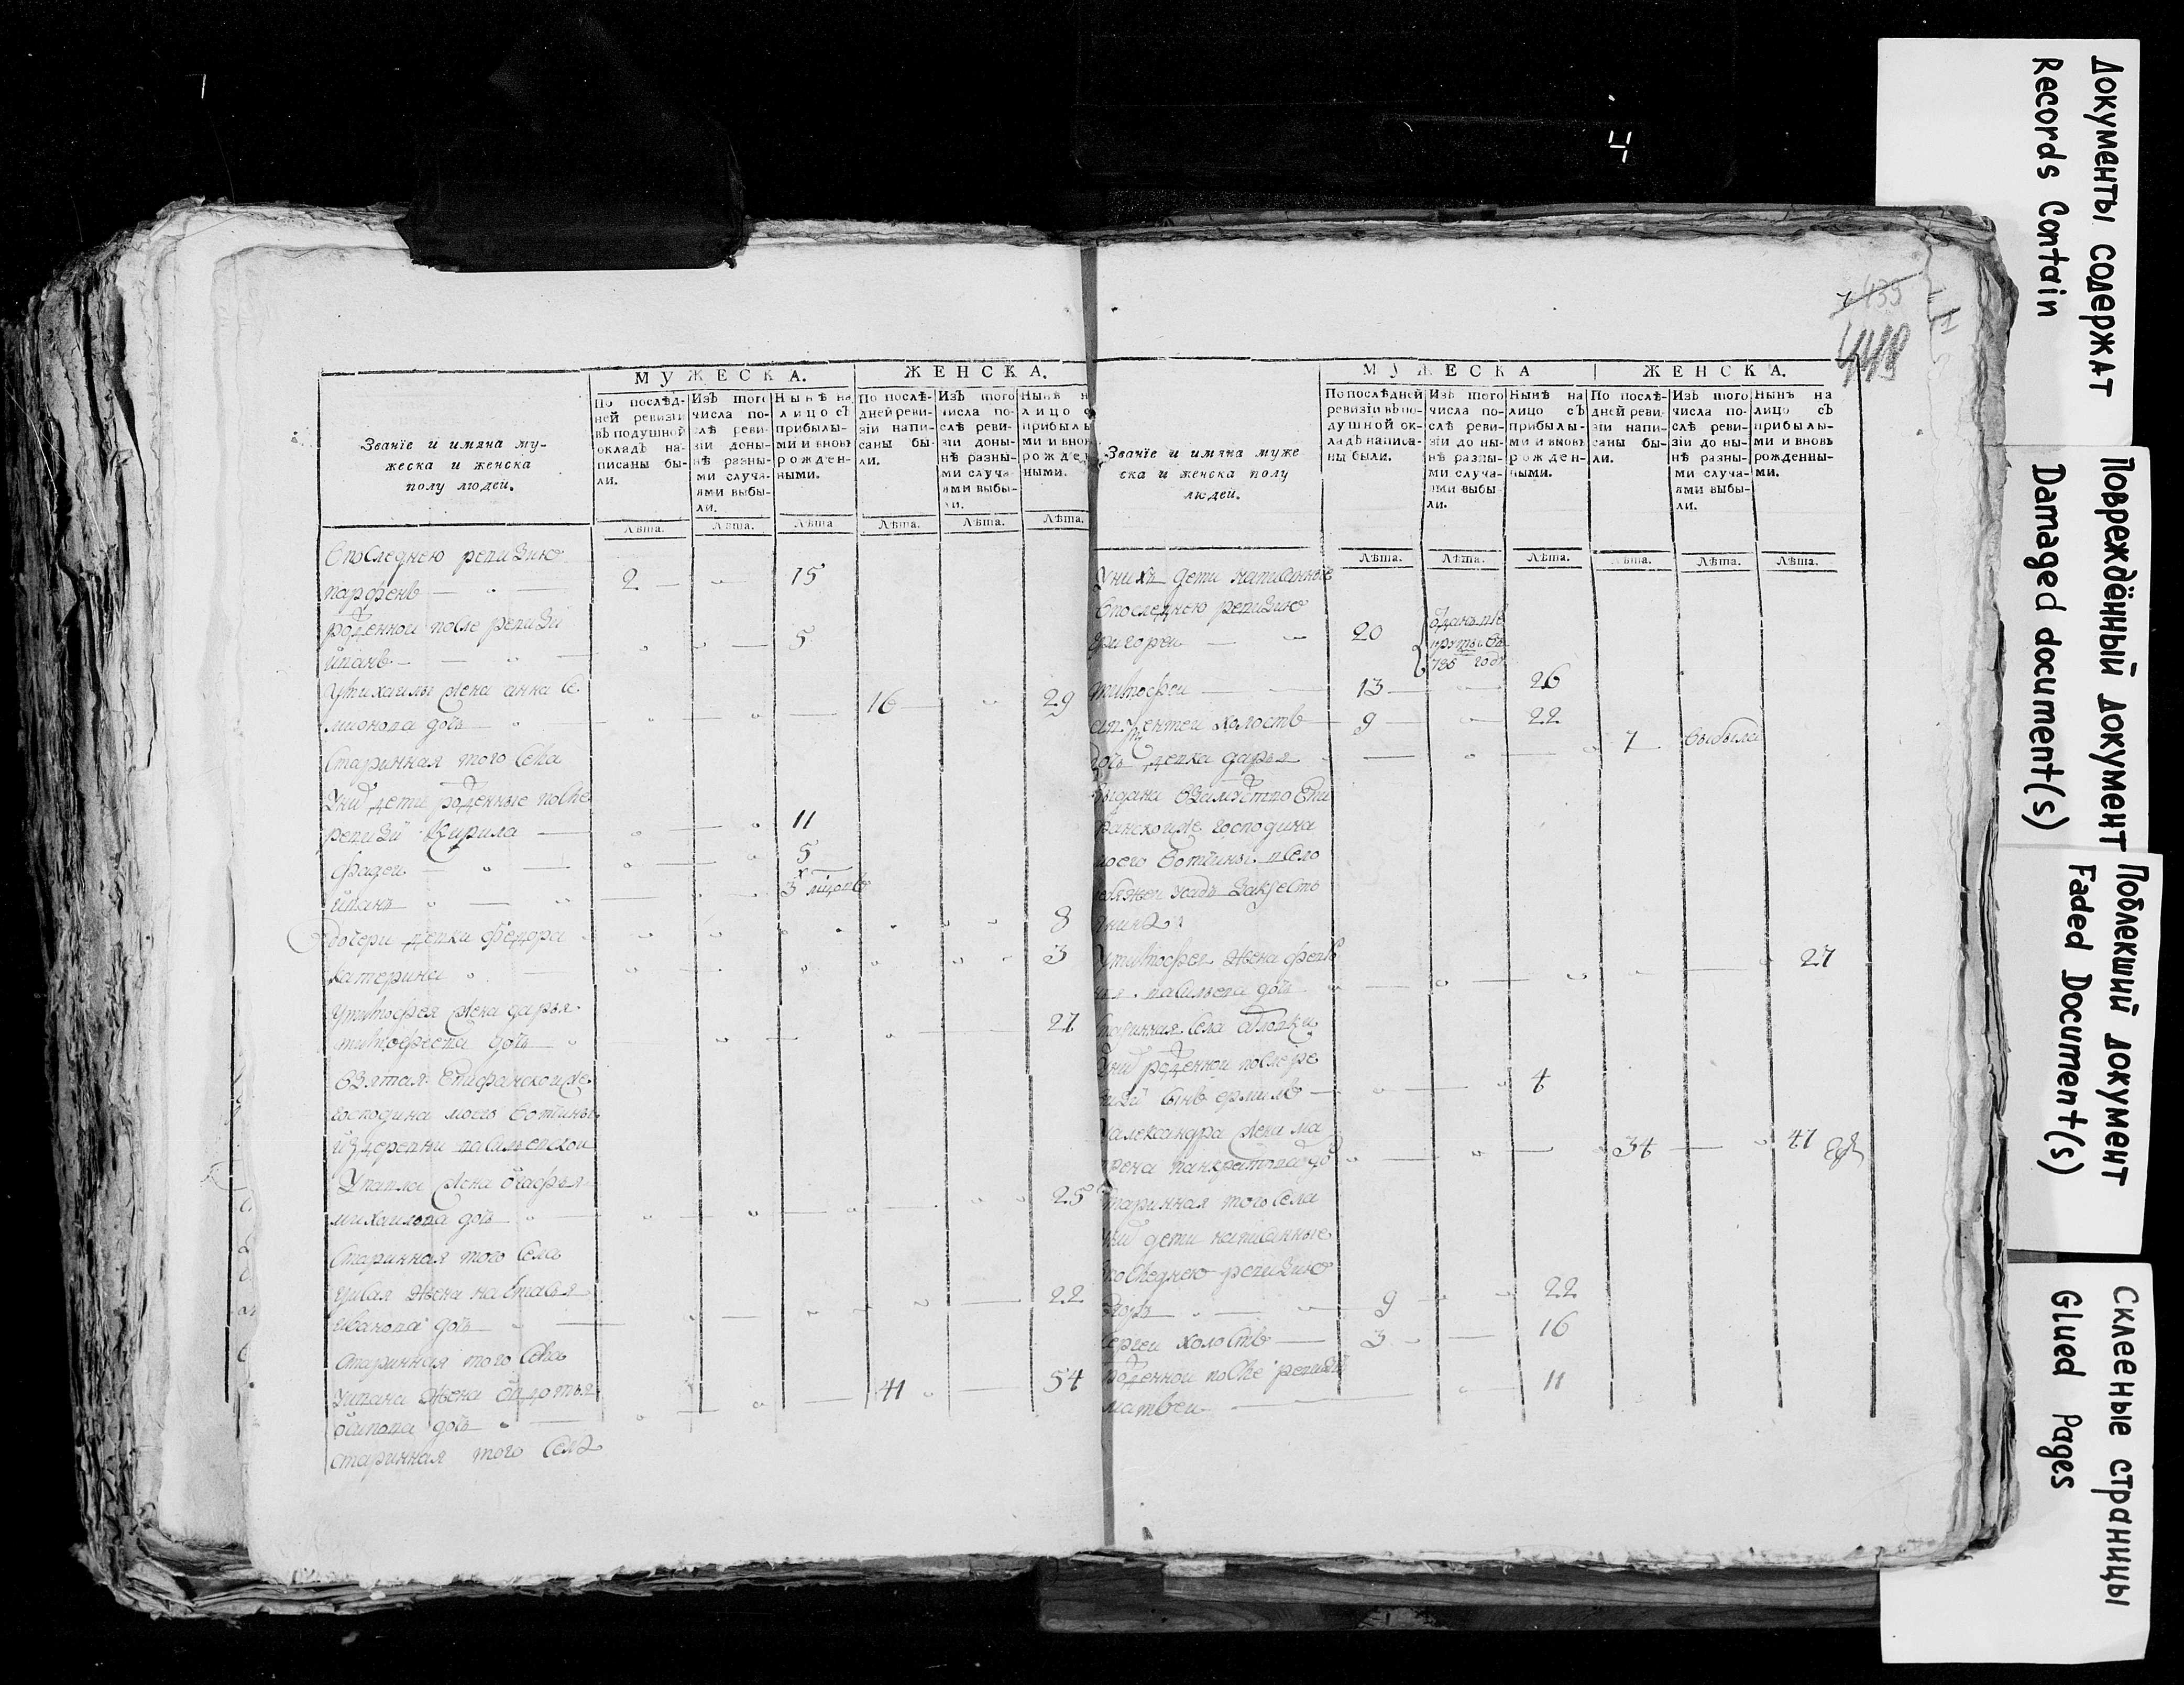 4
Документы содержат
Records Contain
Повреждённый документ
Damaged document(s)
Поблекший документ
Faded Document(s)
Склееные страницы
Glued Pages
435
448
МУЖЕСКА. ЖЕНСКА.
Званїе и имяна му-
жеска и женска
полу людей.
По послѣд-
ней ревизіи
въ подушной
окладъ на-
писаны бы-
ли.
Изъ того
числа по-
слѣ реви-
зіи доны-
нѣ разны-
ми случа-
ями выбы-
ли.
Нынѣ на
лицо съ
прибылы-
ми и вновь
рожден-
ными.
По послѣ-
дней реви-
зіи напи-
саны бы-
ли.
Изъ того
числа по-
слѣ реви-
зіи доны-
нѣ разны-
ми случа-
ями выбы-
ли.
Нынѣ
лицо
прибылы
ми и внов
рожде
ными.
Лѣта. Лѣта. Лѣта. Лѣта. Лѣта. Лѣта.
Споследнею ревизию
парфенъ 2 15
роденной после ревизи
иванъ 5
У михаилы жена анна се
мионова дочь 16 29
Старинная того села
У них дети роденные после
ревизи Кирила 11
фадеи 5
иванъ 3
дочери девки федора 8
катерина 3
У тимофея жена дарья
тимофеева дочь 27
Взятая Епифанской же
господина моего вотчины
из деревни васильевской
У павла жена агафья
михаилова дочь 25
Старинная того села
жена наставья
иванова дочь 22
Старинная того села
У ивана жена авдотья
осипова дочь 41 54
старинная того села
МУЖЕСКА ЖЕНСКА.
Званїе и имяна муже
ска и женска полу
людей.
По послѣдней
ревизіи въ по-
душной ок-
ладъ написа-
ны были.
Изъ того
числа по-
слѣ реви-
зіи до ны-
нѣ разны-
ми случа-
ями выбы
ли.
Нынѣ на
лицо съ
прибылы-
ми и вновь
рожден-
ными.
По послѣ-
дней реви-
зіи напи-
саны бы-
ли.
Изъ того
числа по-
слѣ реви-
зіи до ны-
нѣ разны-
ми случа-
ями выбы-
ли.
Нынѣ на
лицо съ
прибылы-
ми и вновь
рожденны-
ми.
Лѣта. Лѣта. Лѣта. Лѣта. Лѣта. Лѣта.
У них дети написанные
Споследнею ревизию
григореи 20 годе
тимофеи 13 26
холостъ 9 22
дочь девка дарья 7 выбыла
выдана взамуство Епи
фанской же господина
моего вотчины
У тимофея жена
васильева дочь 27
старинная села
роденной после ре
визи сынъ ермилъ 4
У александра жена ма
рена панкратова до 34 47
старинная того села
дети написанные
последнею ревизию
9 22
сергеи холостъ 3 16
роденной после ревизи
матвеи 11